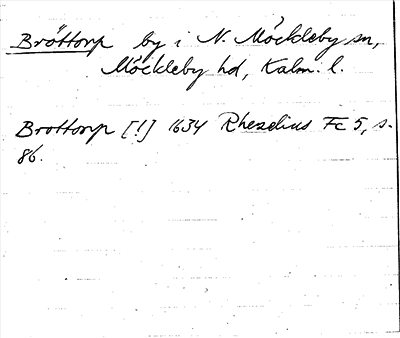 Bröttorp by i N. Möckleby sn,
Möckleby hd, Kalm. l.
Brottorp [!] 1634 Rhezelius Fc 5, s.
86.